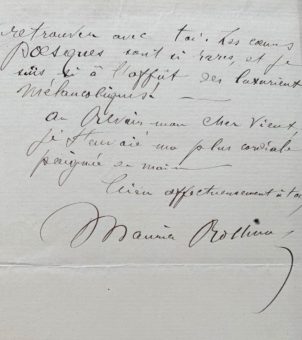 retrouver avec toi. Les cœurs
Poesques sont si rares et je
suis si à l'affût des
mélancoliques!
au revoir mon cher vieux
je t'envoie ma plus cordiale
poignée de main
bien affectueusement à toi
Maurice Rollinat